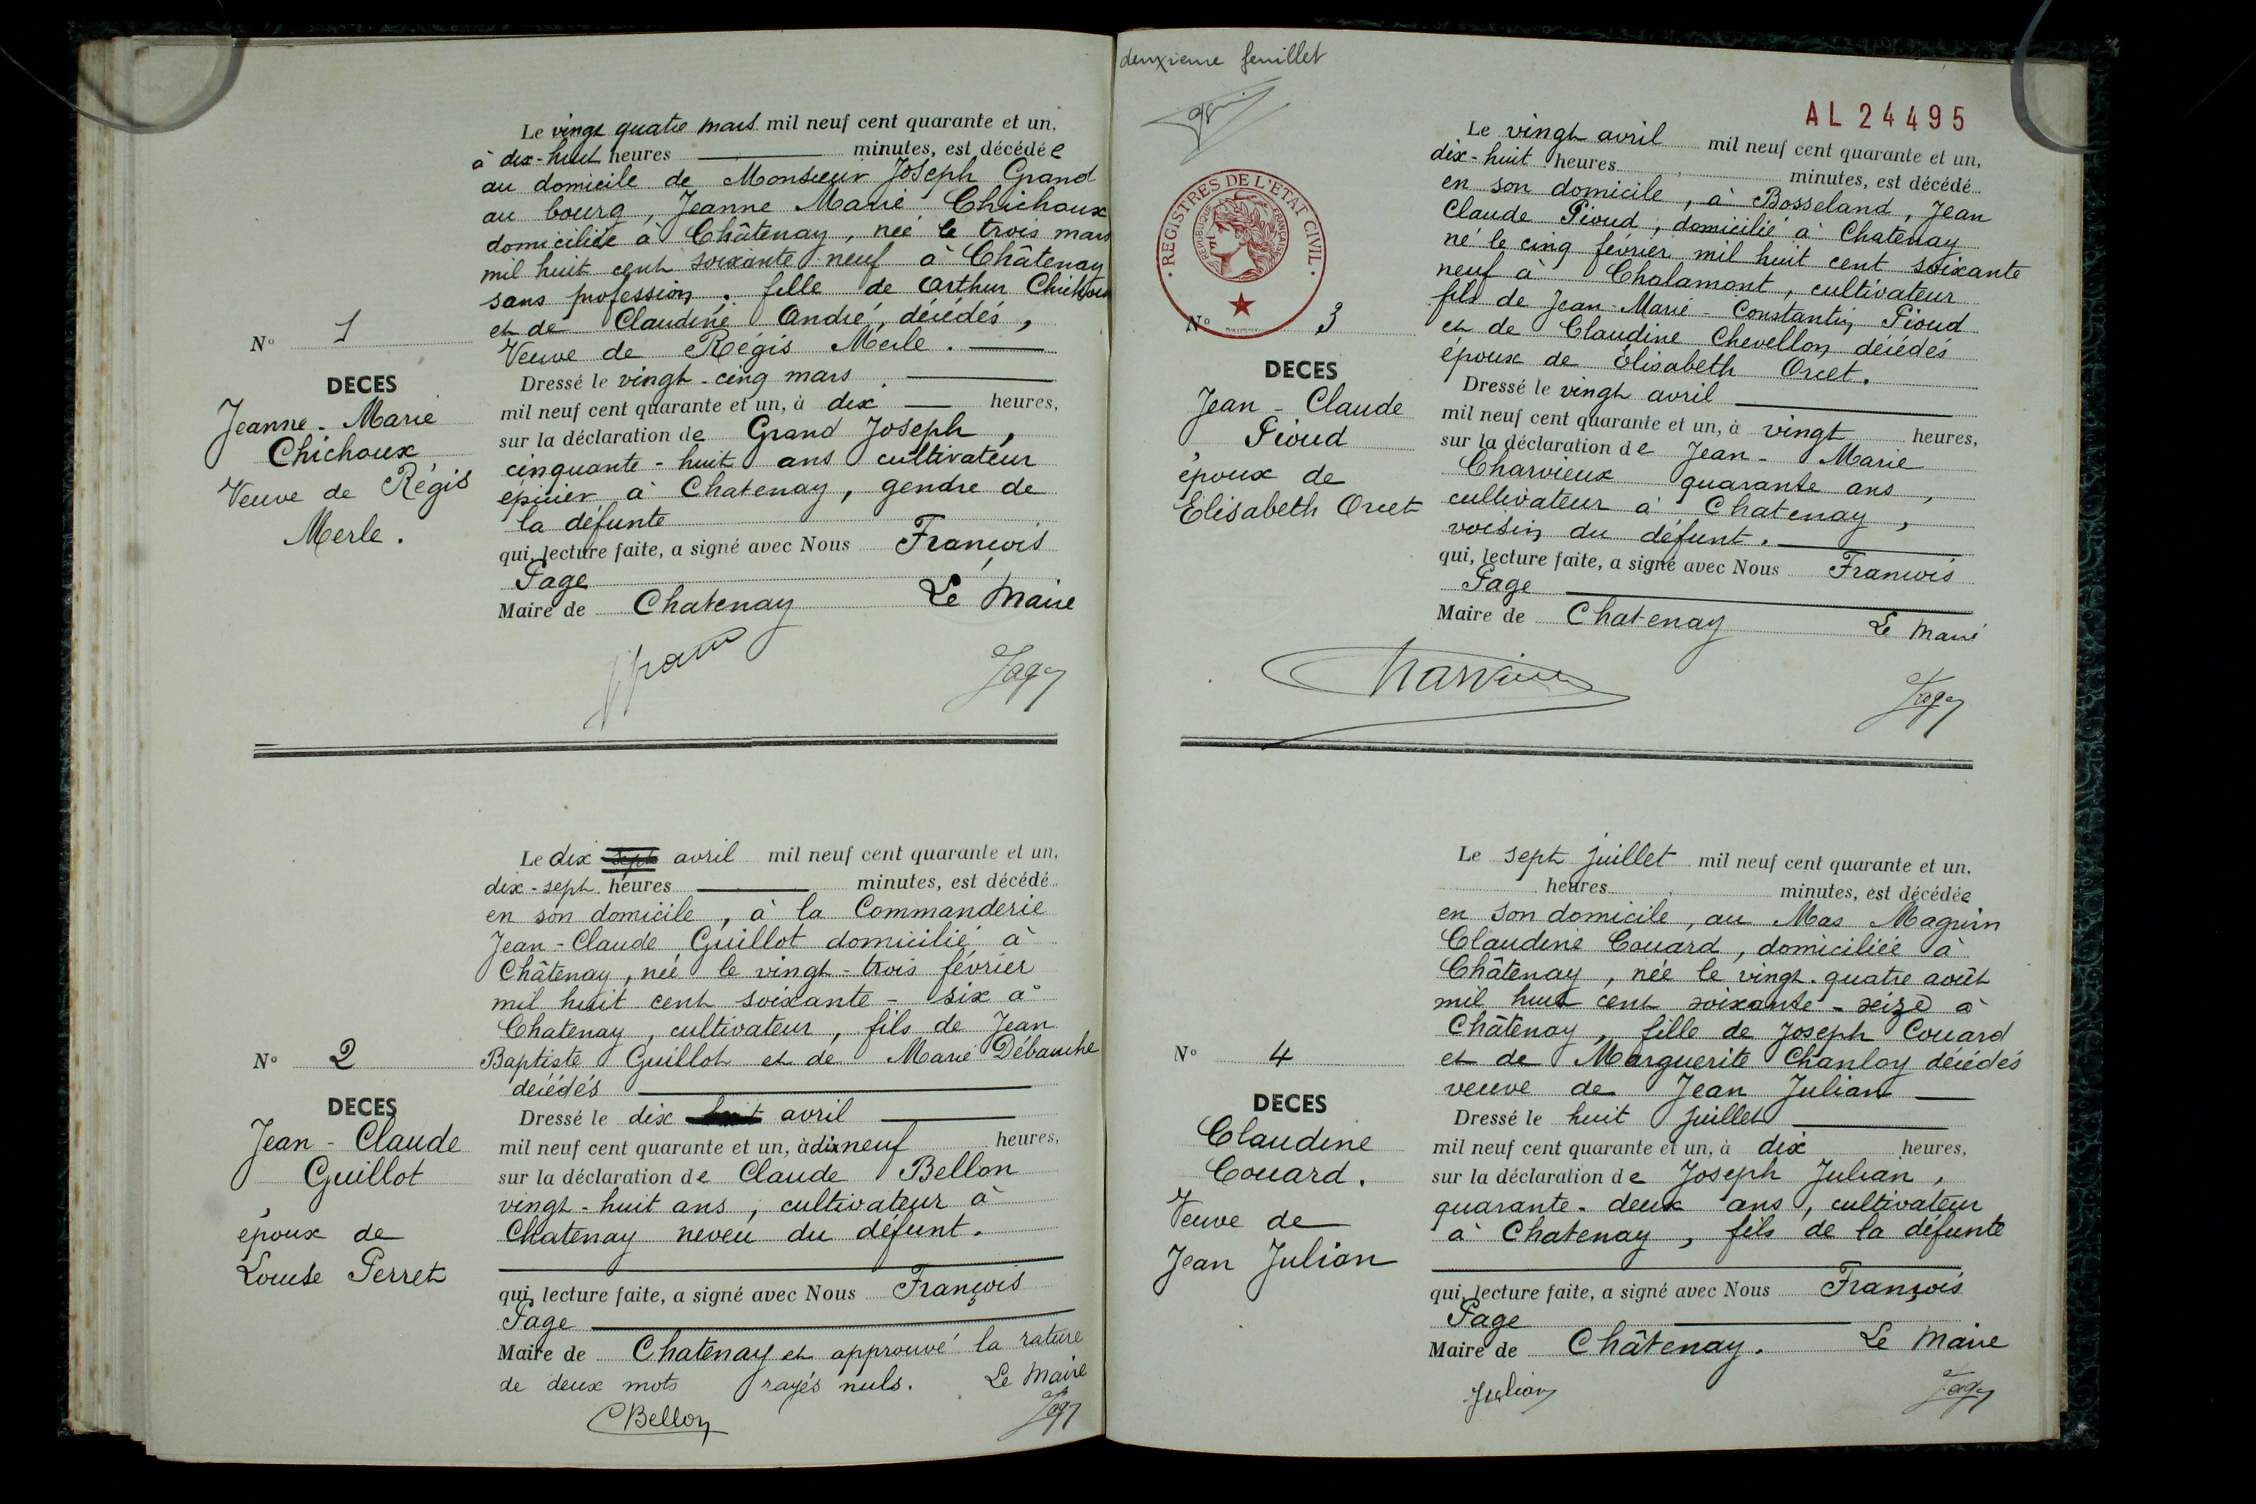 Le vingt quatre mars mil neuf cent quarante et un,
à dix-huit heures minutes, est décédée
au domicile de Monsieur Joseph Grand
au bourg, Jeanne Marie Chichoux
domiciliée à Châtenay, née le trois mars
mil huit cent soixante neuf à Châtenay
sans profession, fille de Arthur Chichoux
et de Claudine André, décédés,
Veuve de Régis Merle.
N° 1
DECES
Jeanne-Marie
Chichoux
Veuve de Régis
Merle.
Dressé le vingt-cinq mars
mil neuf cent quarante et un, à dix heures,
sur la déclaration de Grand Joseph,
cinquante-huit ans cultivateur
épicier à Chatenay, gendre de
la défunte
qui, lecture faite, a signé avec Nous François
Page
Maire de Chatenay Le Maire
Le dix sept avril mil neuf cent quarante et un,
dix-sept heures minutes, est décédé
en son domicile, à la Commanderie
Jean-Claude Guillot domicilié à
Châtenay, née le vingt-trois février
mil huit cent soixante-six à
Chatenay, cultivateur, fils de Jean
Baptiste Guillot et de Marie Débauche
décédés
N° 2
DECES
Jean-Claude
Guillot
époux de
Louise Perret
Dressé le dix huit avril
mil neuf cent quarante et un, à dix neuf heures,
sur la déclaration de Claude Bellon
vingt-huit ans, cultivateur à
Chatenay neveu du défunt.
qui, lecture faite, a signé avec Nous François
Page
Maire de Chatenay et approuvé la rature
de deux mots rayés nuls. Le Maire
CBellon
deuxieme feuillet
AL 24495
REGISTRES DE L'ETAT CIVIL
REPUBLIQUE FRANÇAISE
Le vingt avril mil neuf cent quarante et un,
dix-huit heures minutes, est décédé
en son domicile, à Bosseland, Jean
Claude Pioud, domicilié à Chatenay
né le cinq février mil huit cent soixante
neuf à Chalamont, cultivateur
fils de Jean-Marie-Constantin Pioud
et de Claudine Chevellon décédés
époux de Élisabeth Orcet.
N° 3
DECES
Jean-Claude
Pioud
époux de
Elisabeth Orcet
Dressé le vingt avril
mil neuf cent quarante et un, à vingt heures,
sur la déclaration de Jean-Marie
Charvieux quarante ans,
cultivateur à Chatenay,
voisin du défunt.
qui, lecture faite, a signé avec Nous François
Page
Maire de Chatenay Le Maire
Le sept juillet mil neuf cent quarante et un,
heures minutes, est décédée
en son domicile, au Mas Maguin
Claudine Couard, domiciliée à
Châtenay, née le vingt-quatre août
mil huit cent soixante-seize à
Châtenay, fille de Joseph Couard
et de Marguerite Chanloy décédés
veuve de Jean Julian
N° 4
DECES
Claudine
Couard.
Veuve de
Jean Julian
Dressé le huit juillet
mil neuf cent quarante et un, à dix heures,
sur la déclaration de Joseph Julian,
quarante-deux ans, cultivateur
à Chatenay, fils de la défunte
qui, lecture faite, a signé avec Nous François
Page
Maire de Châtenay. Le Maire
Julian